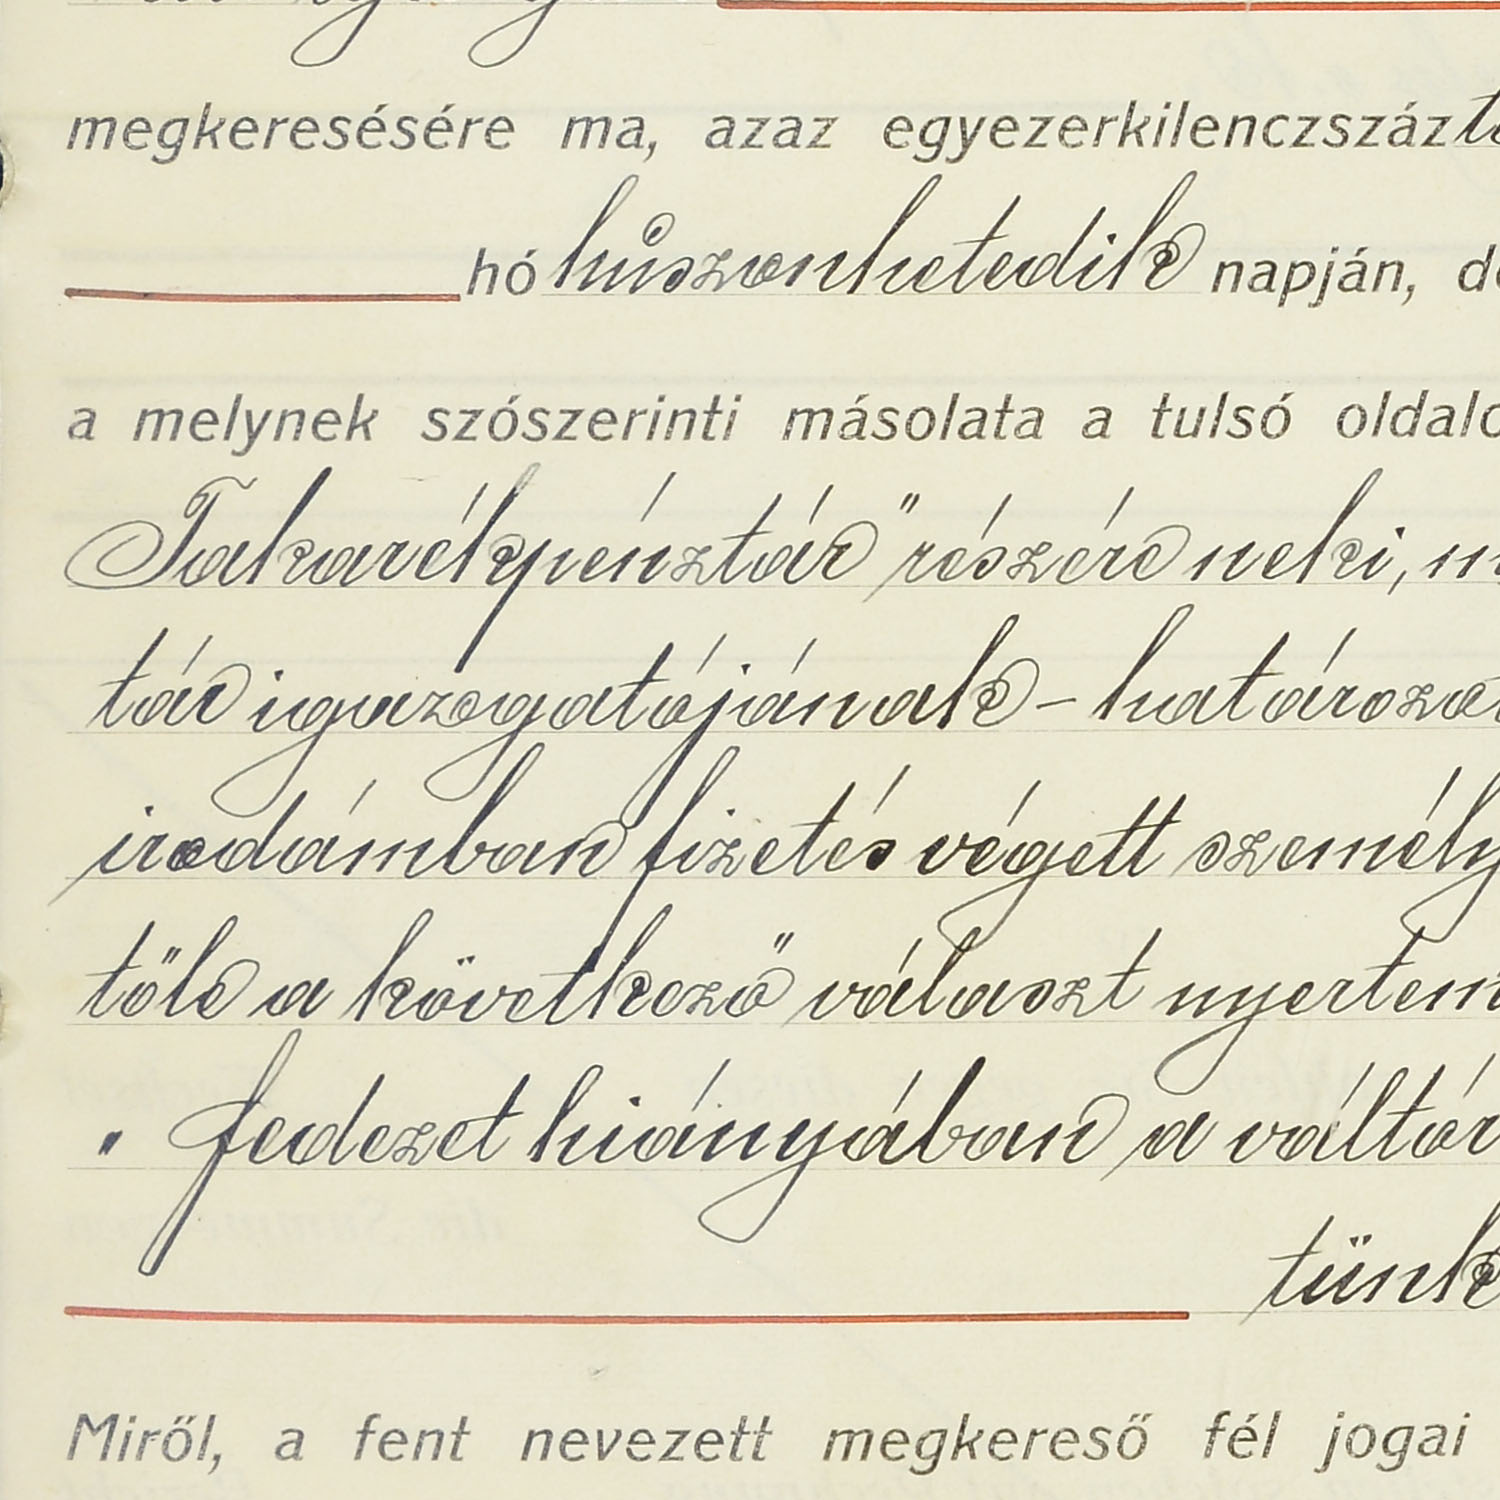 megkeresésére ma, azaz egyezerkilenczszáz
hó húszonhetedik napján,
a melynek szószerinti másolata a tulsó
Takarékpénztár" részére neki,
tár igazgatójának - határozat
irodámban fizetés végett személy
tőle a következő választ nyertem
" fedezet hiányában a váltór
tünk
Miről, a fent nevezett megkereső fél jogai